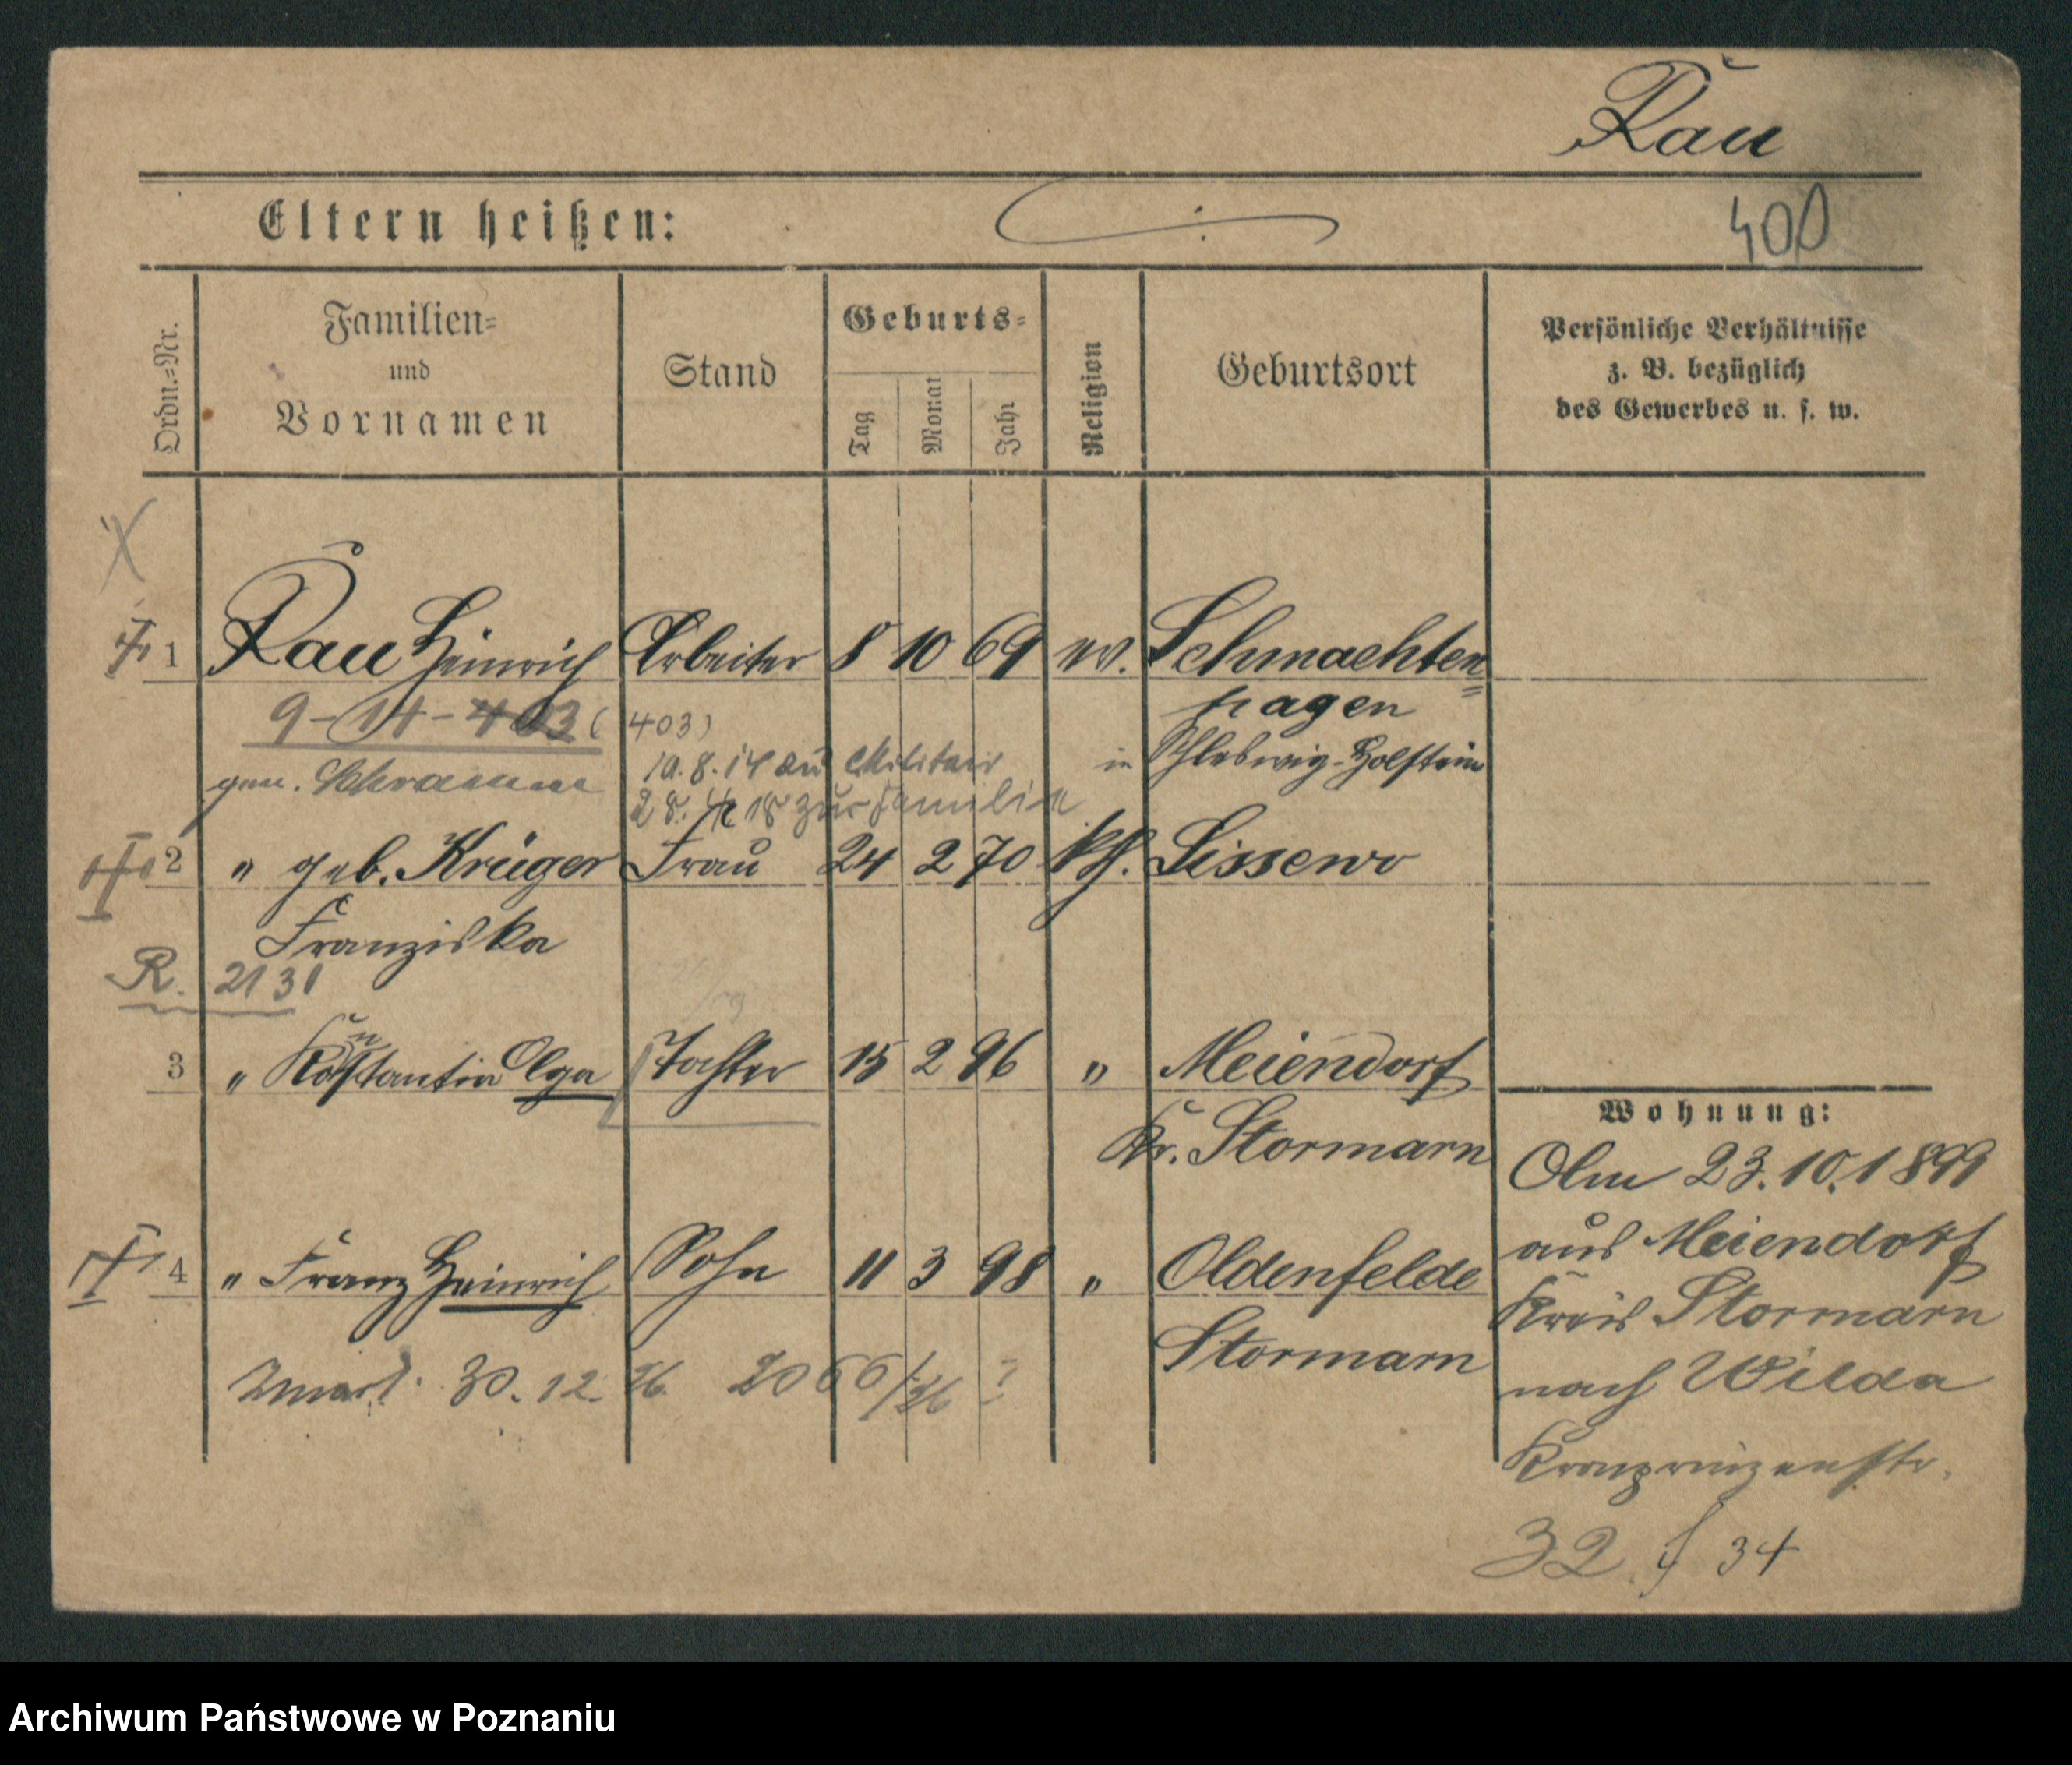 Rau
Eltern heißen:
400
Ordn.=Nr.
Familien=
und
Vornamen
Stand
Geburts=
Tag
Monat
Jahr
Religion
Geburtsort
Persönliche Verhältnisse
z. B. bezüglich
des Gewerbes u. s. w.
1 Rau Heinrich Arbeiter 8 10 69 ev. Schmachten=
hagen
9-14-403 (403)
in Schleswig-Holstein
10.8.14 zu Militair
gen. Schramm
28. 18 zur Familie
2 " geb. Krüger Frau 24 2 70 kth. Lissewo
Franziska
R. 2131
3 " Konstantia Olga Tochter 15 2 96 " Meiendorf
Kr. Stormarn
4 " Franz Heinrich Sohn 11 3 98 " Oldenfelde
Stormarn
zmarł. 30.12. 26. 2066/26 ?
Wohnung:
23.10.1899
aus Meiendorf
Kreis Stormarn
nach Wilda
Kronprinzenstr.
32 34
Archiwum Państwowe w Poznaniu